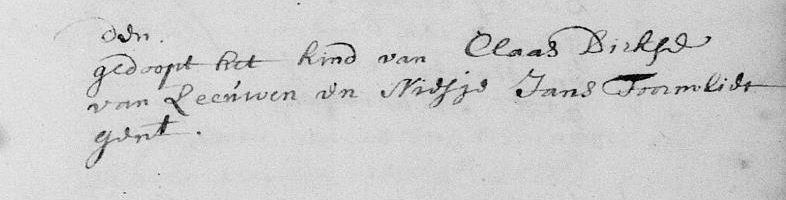 den.
gedoopt het kind van Claas Dirkse
van Leeúwen en Niesje Jans Toornvliet
gent.